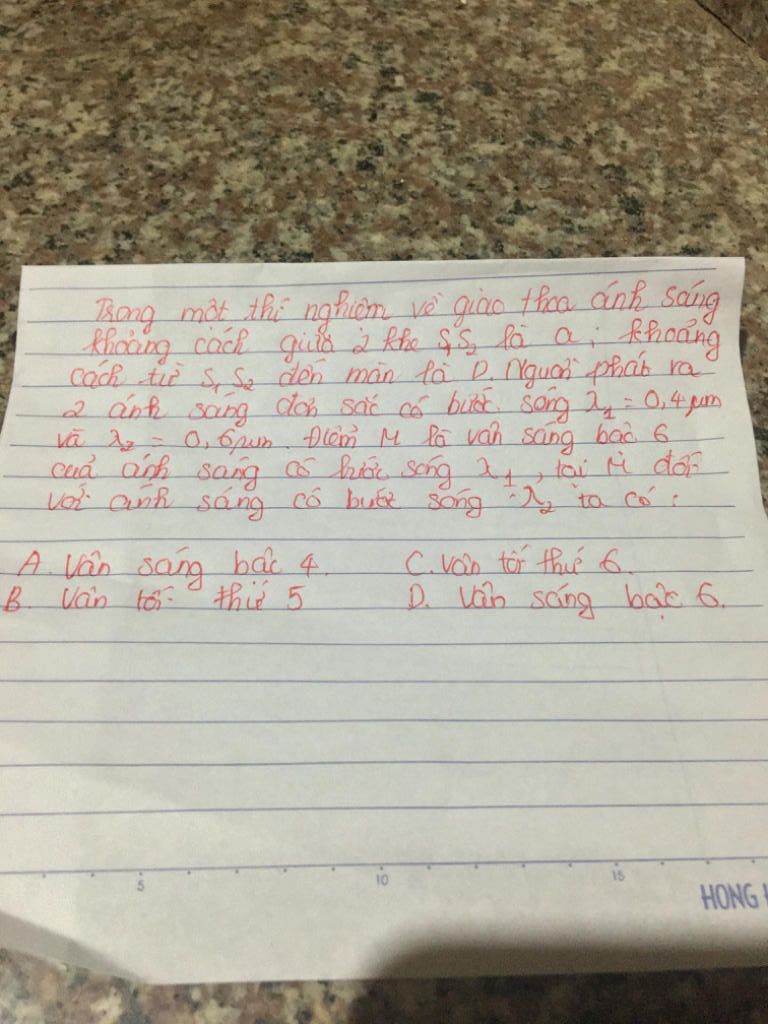 Trong một thí nghiệm về giao thoa ánh sáng
khoảng cách giữa 2 khe S1S2 là a; khoảng
cách từ S1 S2 đến màn là D. Nguồn phát ra
2 ánh sáng đơn sắc có bước sóng λ1 = 0,4 μm
và λ2 = 0,6 μm. Điểm M là vân sáng bậc 6
của ánh sáng có bước sóng λ1, tại M đối
với ánh sáng có bước sóng λ2 ta có:
A. Vân sáng bậc 4. C. vân tối thứ 6.
B. Vân tối thứ 5 D. Vân sáng bậc 6.
5 10 15
HONG